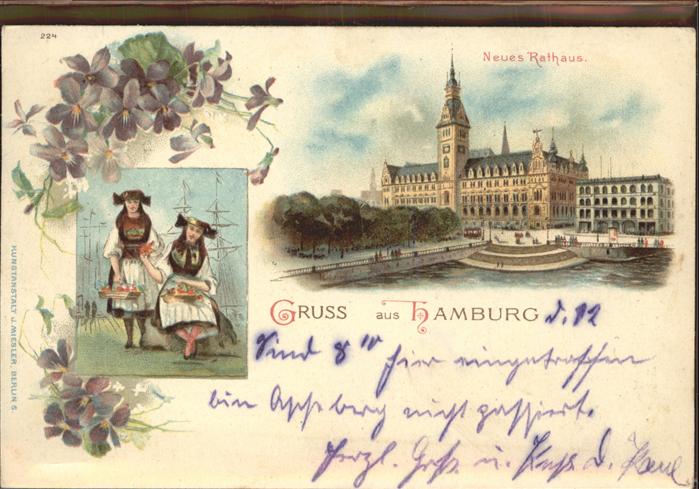 224
Neues Rathaus.
KUNSTANSTALT J. MIESLER, BERLIN S.
GRUSS aus HAMBURG d. 12
Sind 8 hier eingetroffen
bin nicht passiert.
Herzl. Gruß u. Kuß D.